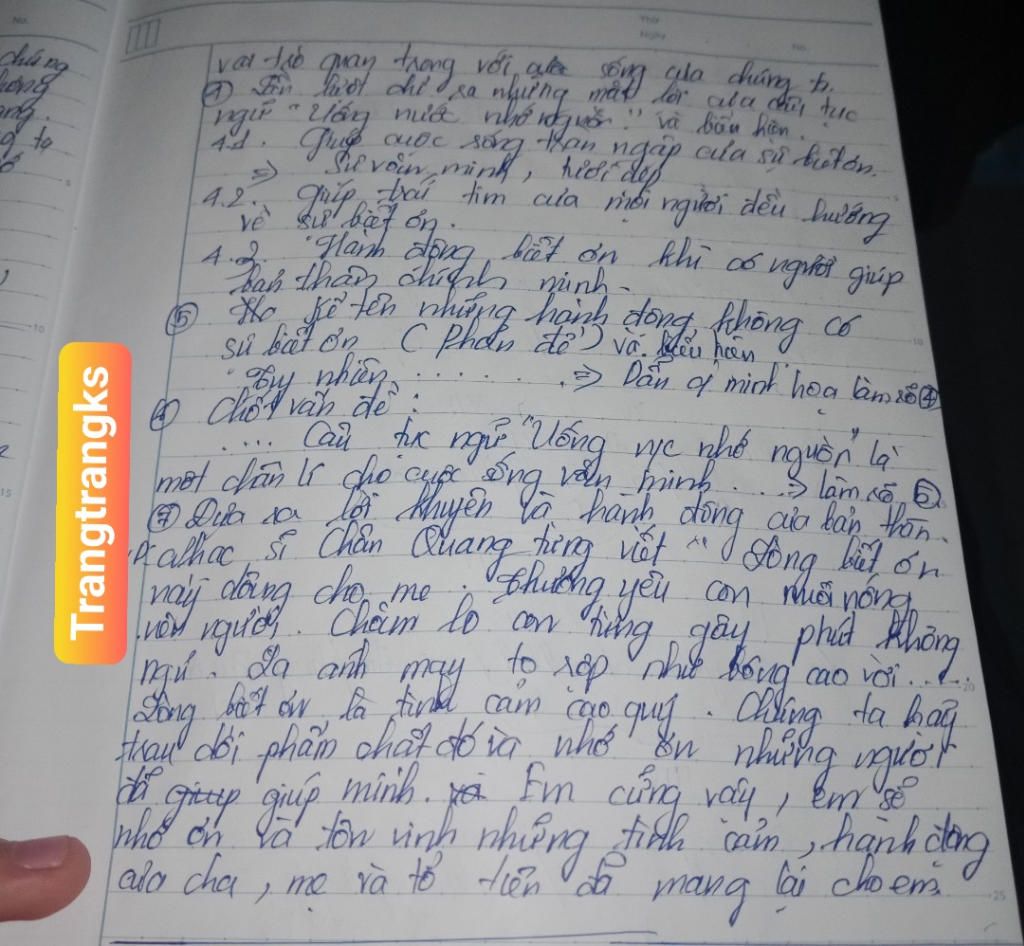 No.
Thứ
Ngày
No.
chúng
vai trò quan trọng với cuộc sống của chúng ta.
④ Lần lượt chỉ ra những mặt lợi của câu tục
ngữ "Uống nước nhớ nguồn" và biểu hiện.
4.1. Giúp cuộc sống tràn ngập của sự biết ơn.
=> Sự văn minh, tươi đẹp
4.2. giúp trái tim của mỗi người đều hướng
về sự biết ơn.
4.3. Hành động biết ơn khi có người giúp
bản thân chính mình.
⑤ kể tên những hành động không có
sự biết ơn (Phản đề) và biểu hiện
Tuy nhiên ........ => Dẫn ý minh họa làm số ④
⑥ Chốt vấn đề:
.... Câu tục ngữ "Uống nc nhớ nguồn" là
một chân lí cho cuộc sống văn minh ... => làm số ⑥
⑦ Đưa ra lời khuyên và hành động của bản thân.
Nhạc sĩ Chân Quang từng viết "Lòng biết ơn
này dâng cho mẹ. Thương yêu con nuôi nóng
nên người. Chăm lo con từng giây phút không
ngủ. La anh may to sop như bóng cao vời.....
Lòng biết ơn là tình cảm cao quý. Chúng ta hãy
trau dồi phẩm chất đó và nhớ ơn những người
đã giúp giúp mình. và Em cũng vậy, em sẽ
nhớ ơn và tôn vinh những tình cảm, hành động
của cha, mẹ và tổ tiên đã mang lại cho em.
5
10
15
20
25
Trangtrangks